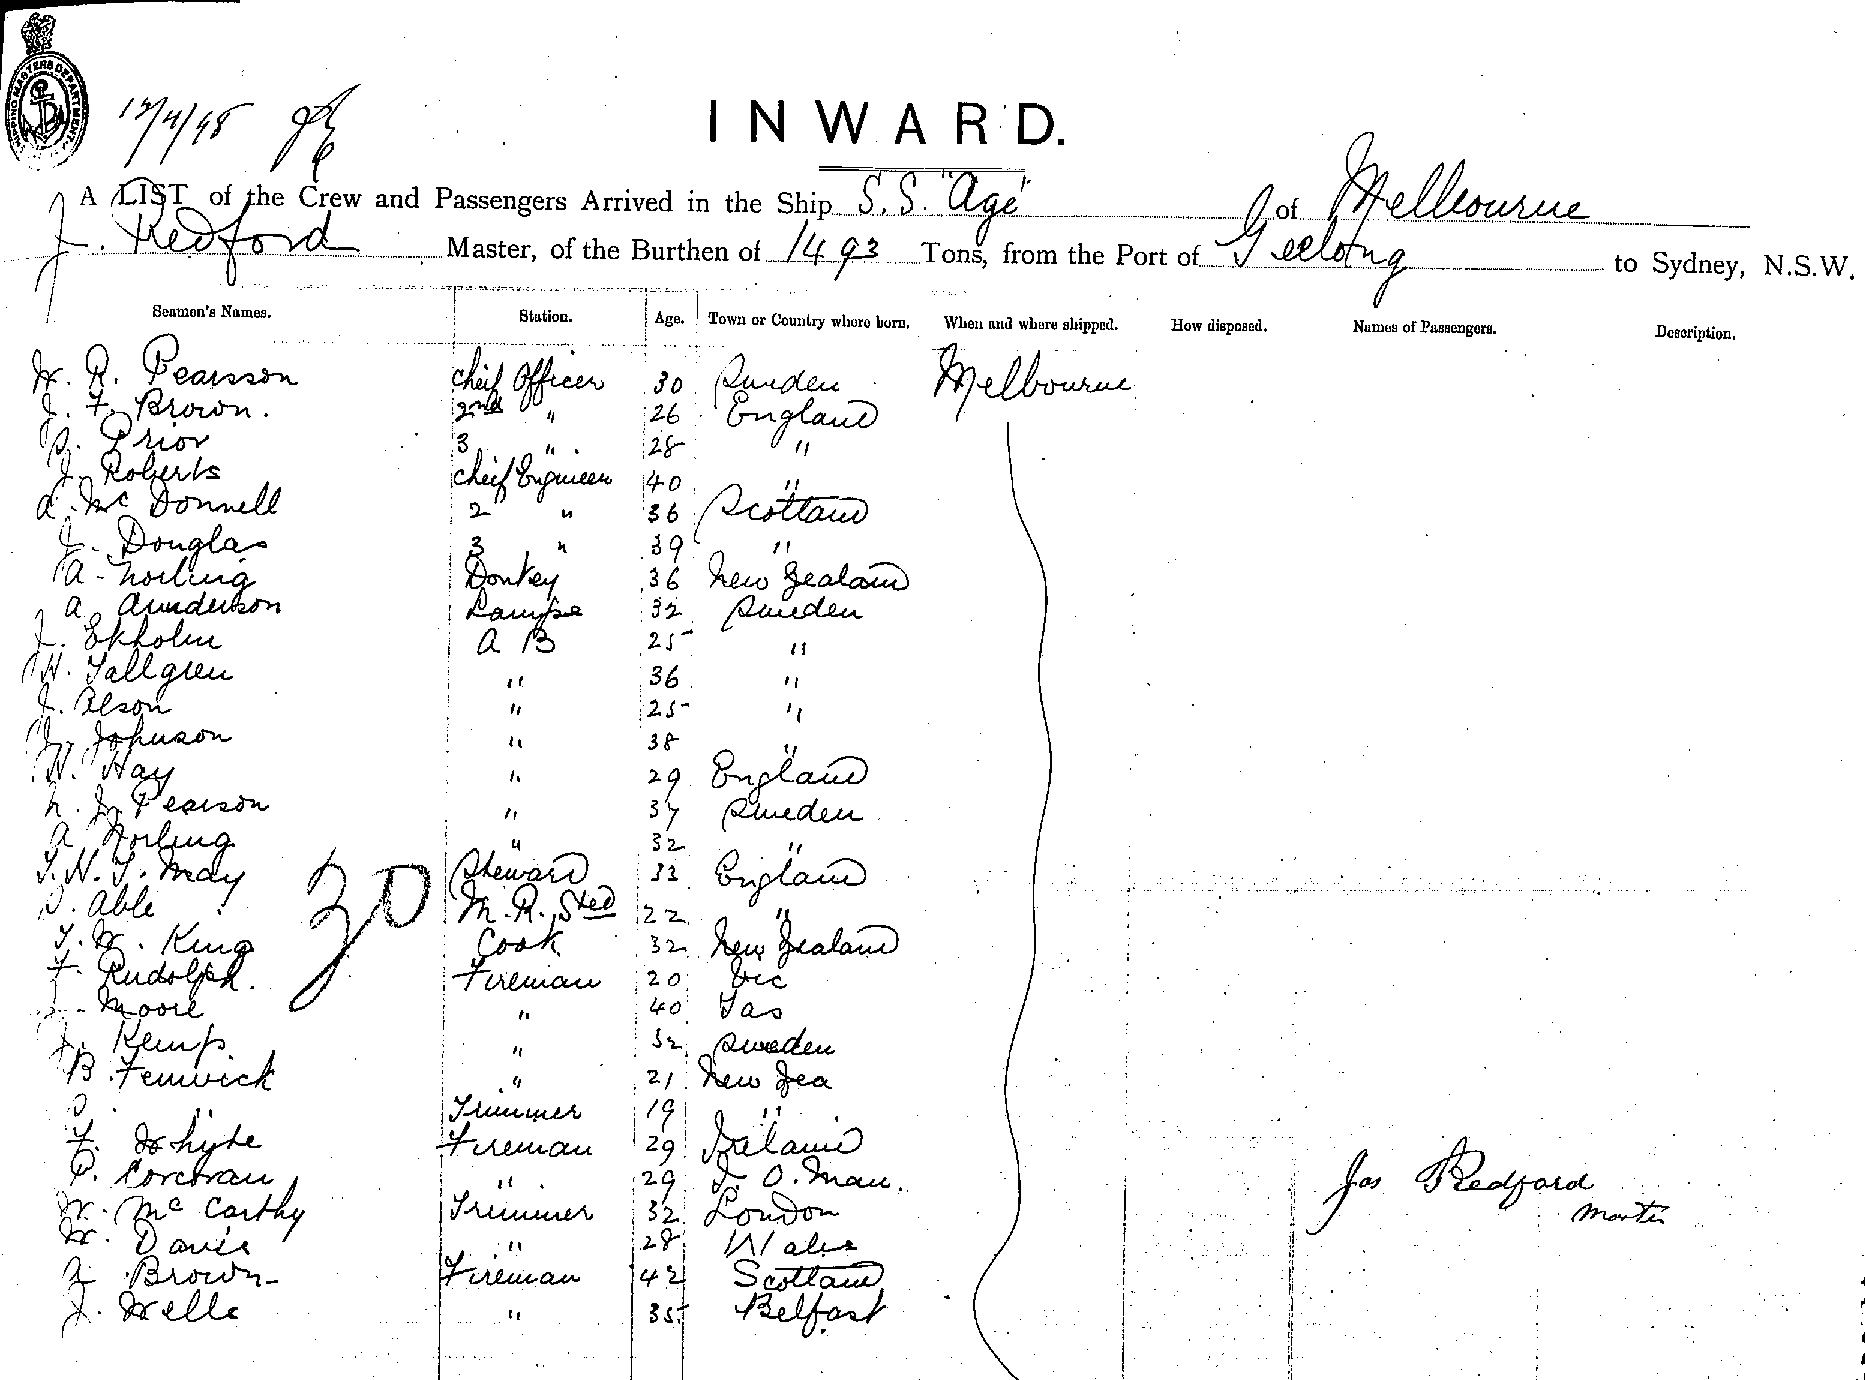 SHIPPING MASTERS DEPARTMENT
12/4/98
INWARD.
A LIST of the Crew and Passengers Arrived in the Ship S.S. "Age" of Melbourne
J. Redford Master, of the Burthen of 1493 Tons, from the Port of Geelong to Sydney, N.S.W.
Seamen's Names. Station. Age. Town or Country where born. When and where shipped. How disposed. Names of Passengers. Description.
W. R. Pearsson Cheif Officer 30 Sweden Melbourne
J. F. Brown. 2nd " 26 England
Prior 3 " 28 "
J. Roberts Cheif Engineer 40 "
A. McDonnell 2 " 36 Scotland
J. Douglas 3 " 39 "
A. Norling Donkey 36 New Zealand
A. Aunderson Lamps 32 Sweden
J. Ekholm A B 25 "
W. Tallgren " 36 "
J. Olson " 25 "
J. Johnson " 38 "
W. Hay " 29 England
N. J. Pearson " 37 Sweden
A Norling " 32 "
T. H. J. May Steward 33 England
S. Able M. R. Sted 22 "
30
T. W. King Cook 32 New Zealand
F. Rudolph. Fireman 20 Vic
J. Moore " 40 Tas
J. Kemp. " 32 Sweden
B. Fenwick " 21 New Zea
S. " Trimmer 19 "
F. Whyte Fireman 29 Ireland
P. Corcoran " 29 I. O. Man.
W. McCarthy Trimmer 32 London
W. Davis " 28 Wales
A Brown Fireman 42 Scotland
J. Wells " 35 Belfast
Jas Redford
Master